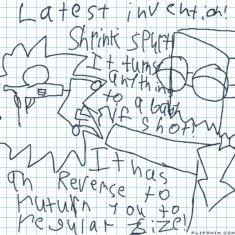 Latest invention!
Shrink spurt!
It turns
anything
to a baby
if shot!
It has
an Reverse to
ruturn you to
regular size!
FLIPANIM.COM